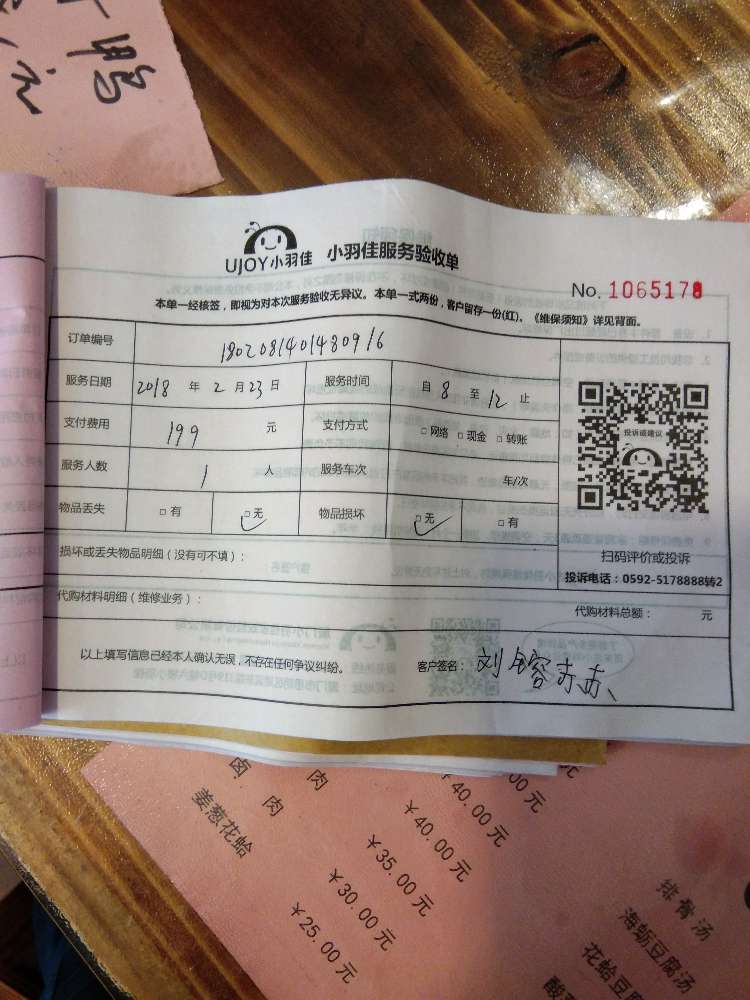 鸭
元
UJOY小羽佳 小羽佳服务验收单
No. 1065178
本单一经核签，即视为对本次服务验收无异议。本单一式两份，客户留存一份(红)。《维保须知》详见背面。
订单编号 1802081401430916
服务日期 2018 年 2 月 23 日 服务时间 自 8 至 12 止
支付费用 199 元 支付方式 □网络 □现金 □转账
投诉或建议
服务人数 1 人 服务车次 车/次
物品丢失 □有 □无 物品损坏 □无 □有
扫码评价或投诉
损坏或丢失物品明细（没有可不填）：
投诉电话：0592-5178888转2
代购材料明细（维修业务）： 代购材料总额： 元
以上填写信息已经本人确认无误，不存在任何争议纠纷。 客户签名：
卤肉
肉
姜葱花蛤
¥40.00元
¥40.00元
¥35.00元
¥30.00元
¥25.00元
排骨汤
海蛎豆腐汤
花蛤豆腐